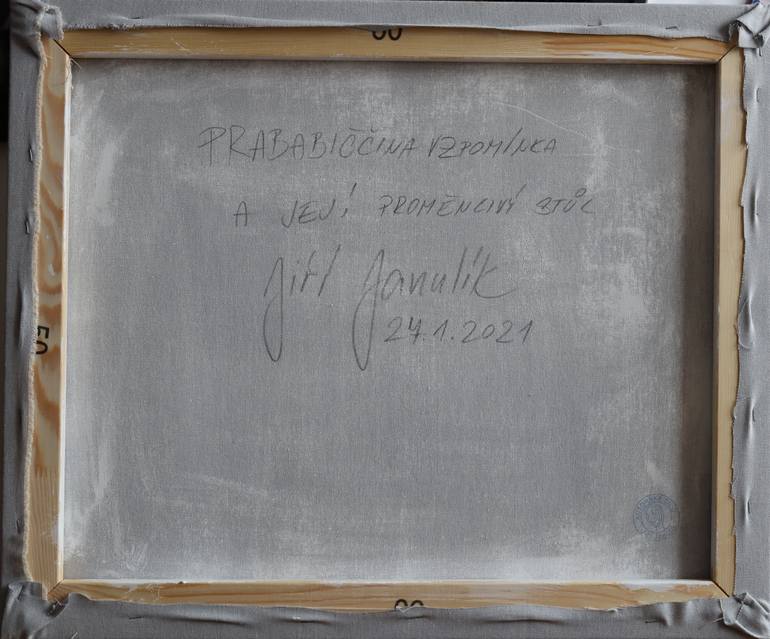 60
PRABABIČČINA VZPOMÍNKA
A JEJÍ PROMĚNLIVÝ STŮL
Jiří Janulík
24.1.2021
50
60